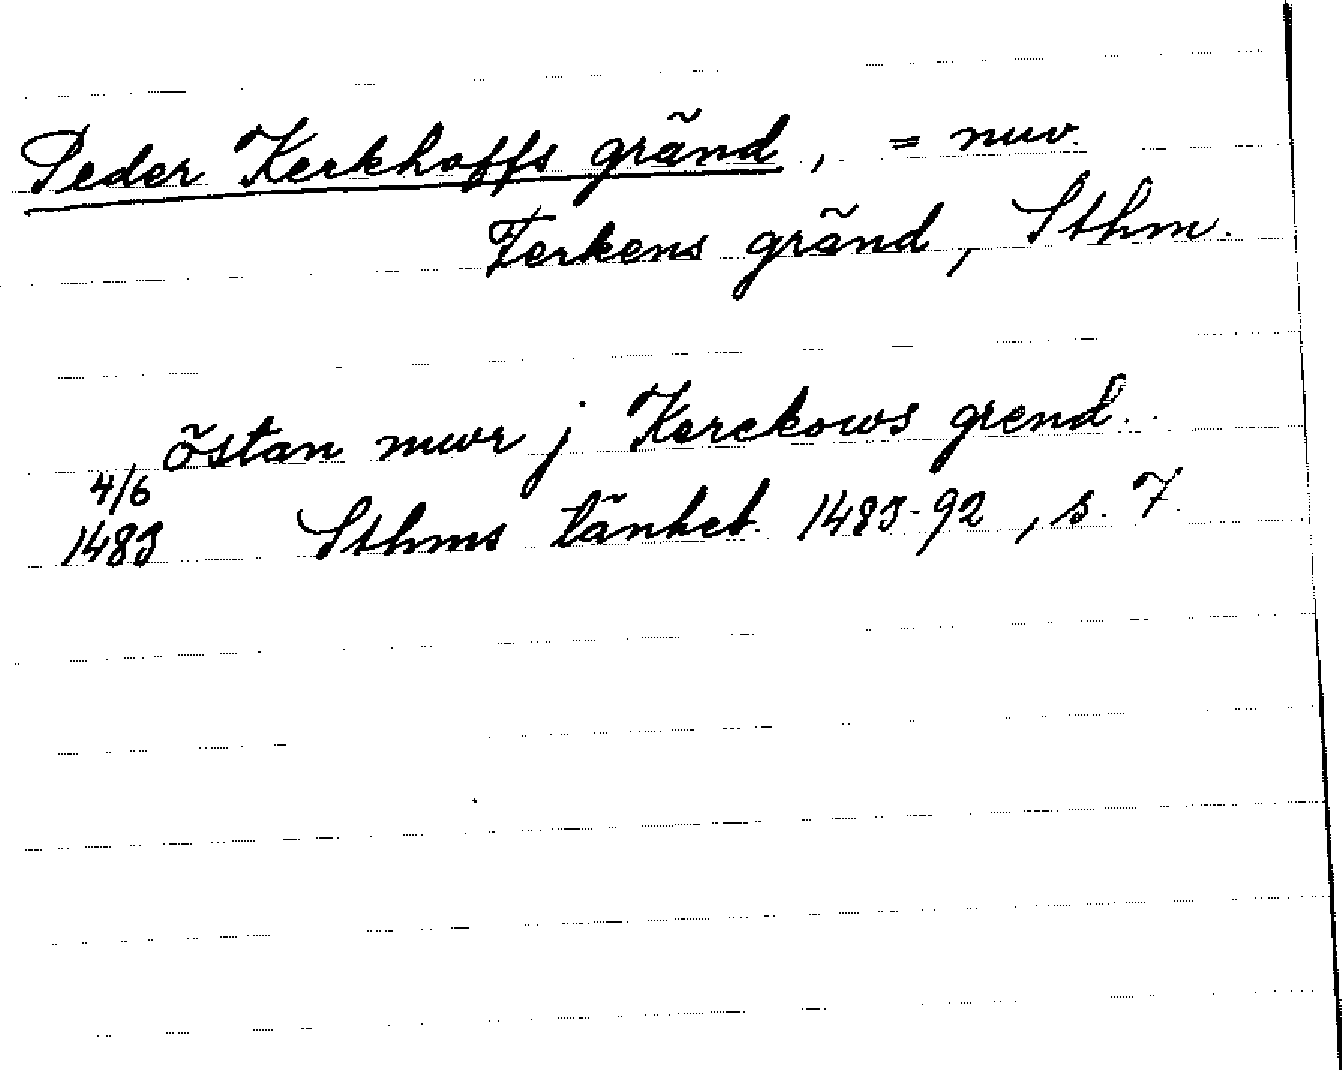 Peder Kerkhoffs gränd, = nuv.
Ferkens gränd, Sthm.
östan mwr j Kerckows grend.
4/6
1483 Sthms tänkeb. 1483-92, s. 7.